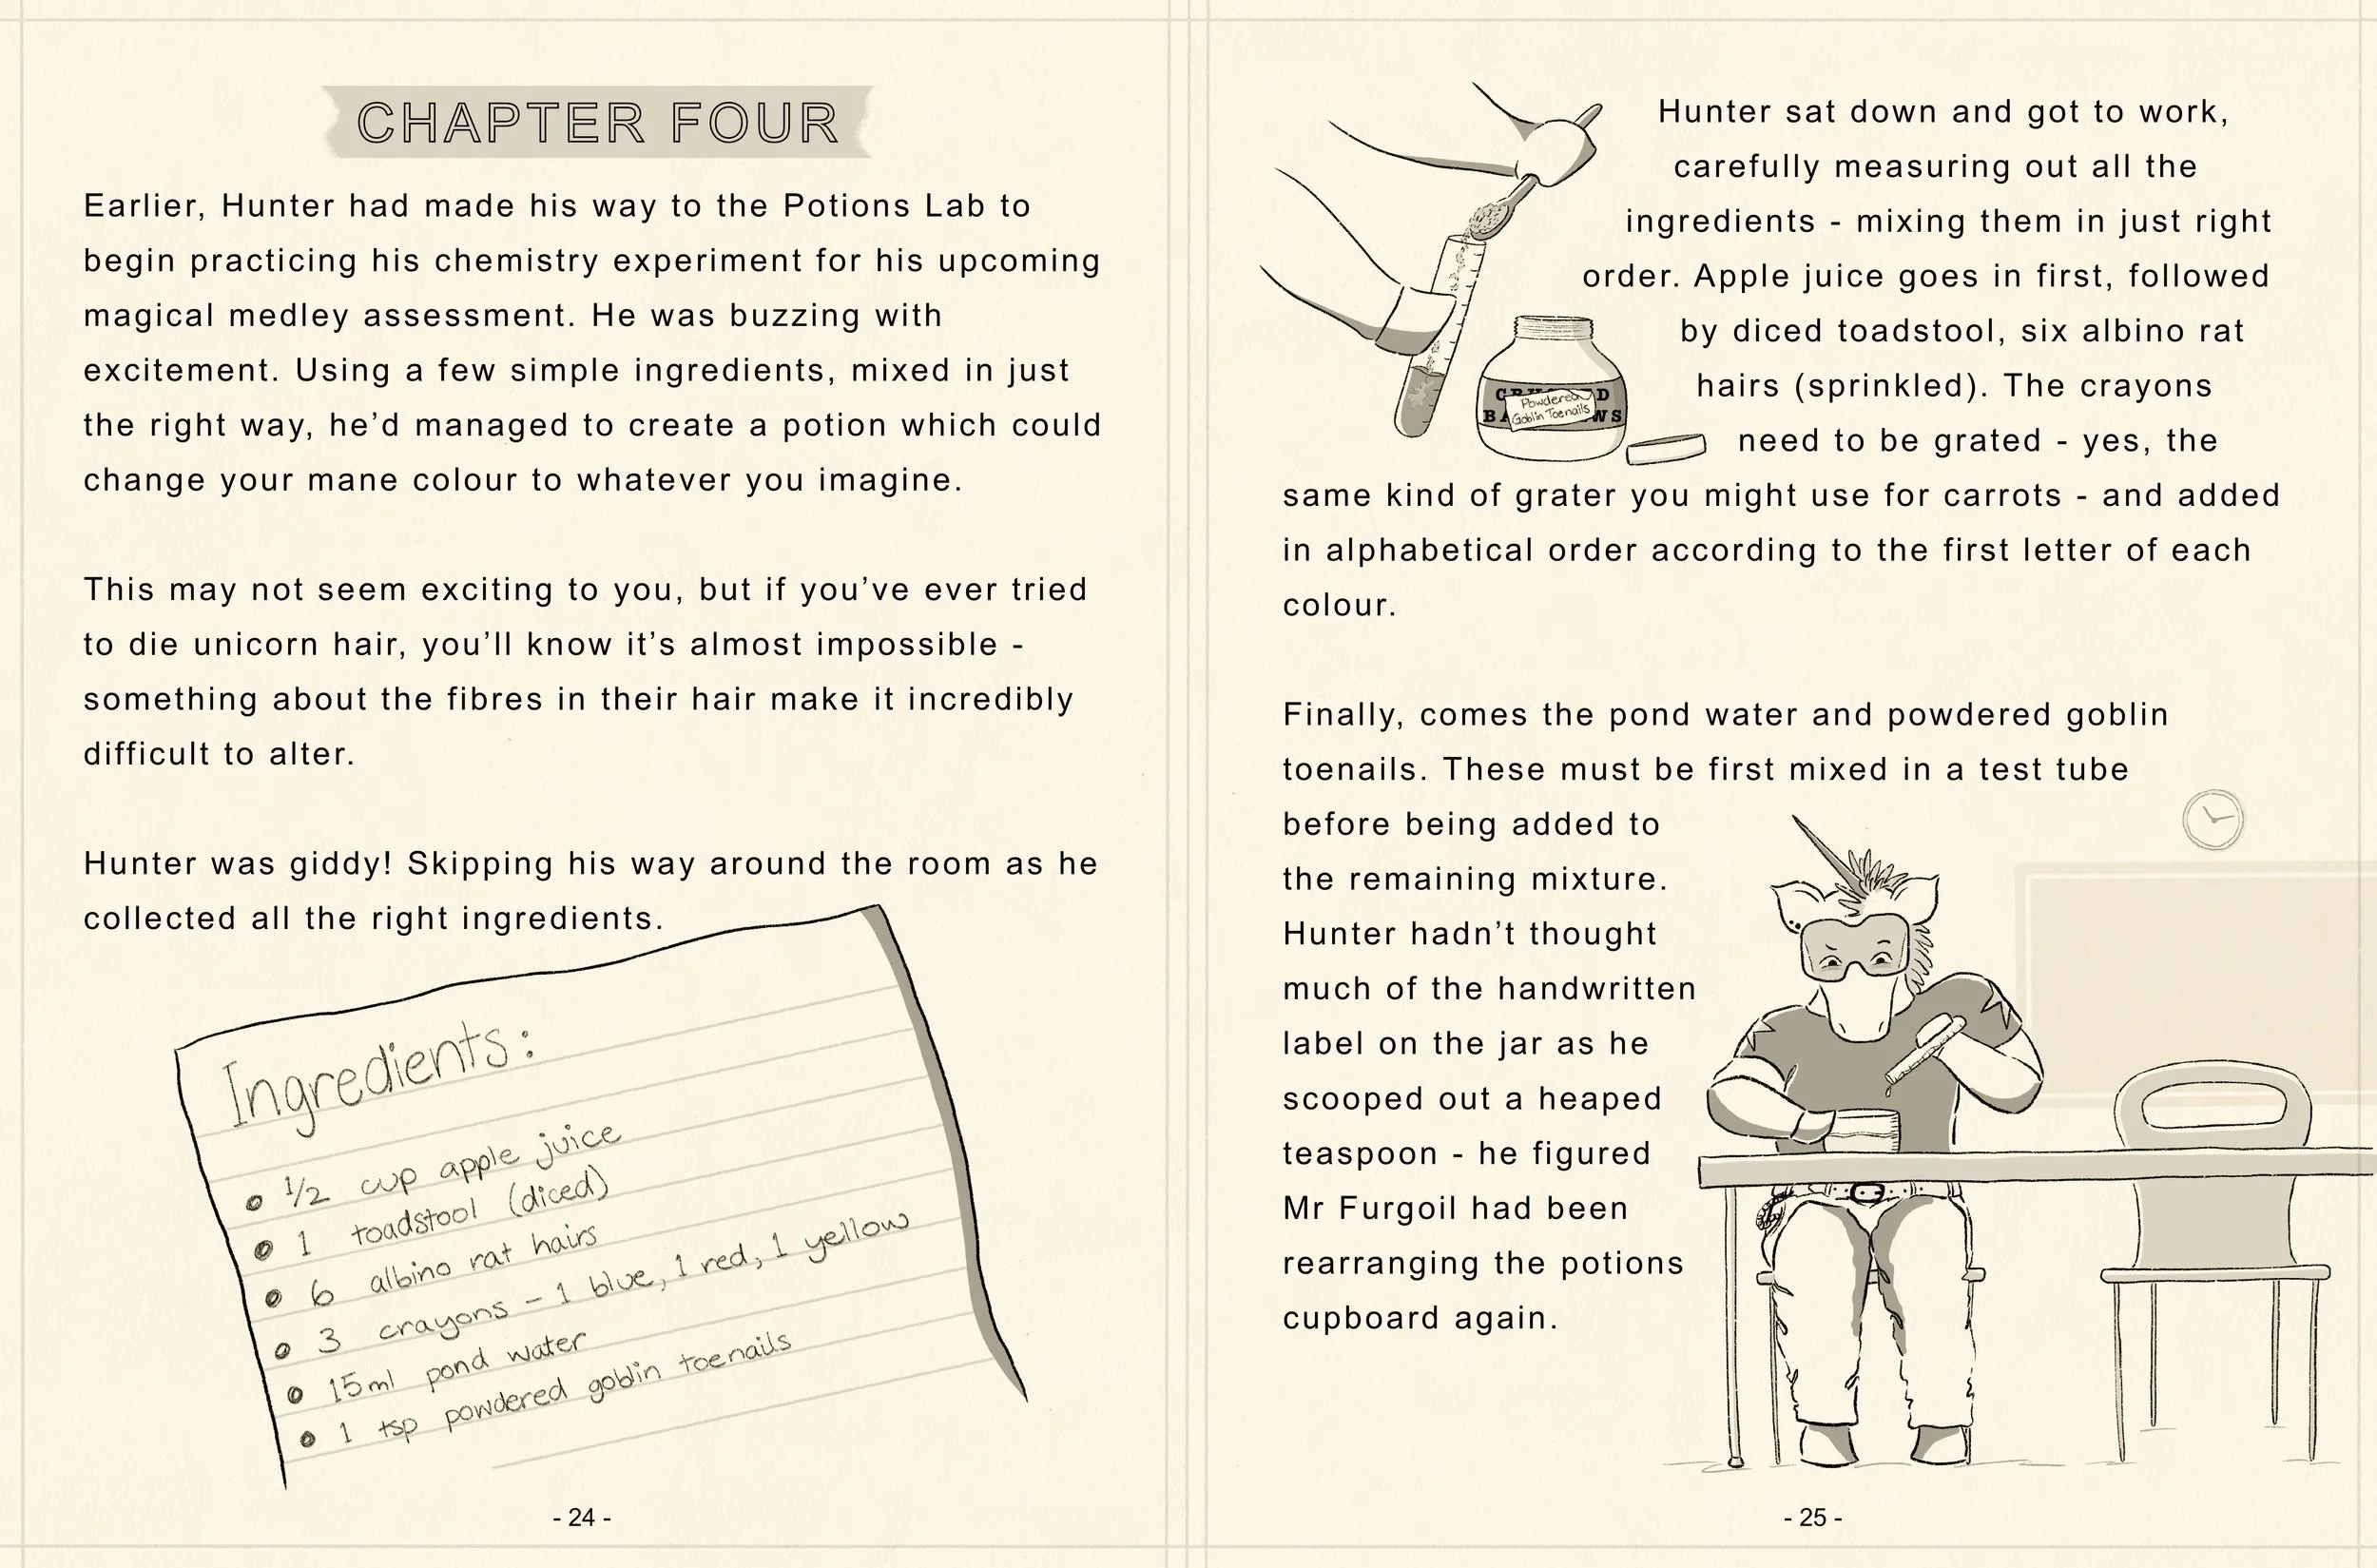 CHAPTER FOUR
Earlier, Hunter had made his way to the Potions Lab to
begin practicing his chemistry experiment for his upcoming
magical medley assessment. He was buzzing with
excitement. Using a few simple ingredients, mixed in just
the right way, he’d managed to create a potion which could
change your mane colour to whatever you imagine.
This may not seem exciting to you, but if you’ve ever tried
to die unicorn hair, you’ll know it’s almost impossible -
something about the fibres in their hair make it incredibly
difficult to alter.
Hunter was giddy! Skipping his way around the room as he
collected all the right ingredients.
Ingredients:
1/2 cup apple juice
1 toadstool (diced)
6 albino rat hairs
3 crayons - 1 blue, 1 red, 1 yellow
15ml pond water
1 tsp powdered goblin toenails
- 24 -
Hunter sat down and got to work,
carefully measuring out all the
ingredients - mixing them in just right
order. Apple juice goes in first, followed
by diced toadstool, six albino rat
hairs (sprinkled). The crayons
need to be grated - yes, the
same kind of grater you might use for carrots - and added
in alphabetical order according to the first letter of each
colour.
Powdered
Goblin Toenails
Finally, comes the pond water and powdered goblin
toenails. These must be first mixed in a test tube
before being added to
the remaining mixture.
Hunter hadn’t thought
much of the handwritten
label on the jar as he
scooped out a heaped
teaspoon - he figured
Mr Furgoil had been
rearranging the potions
cupboard again.
- 25 -